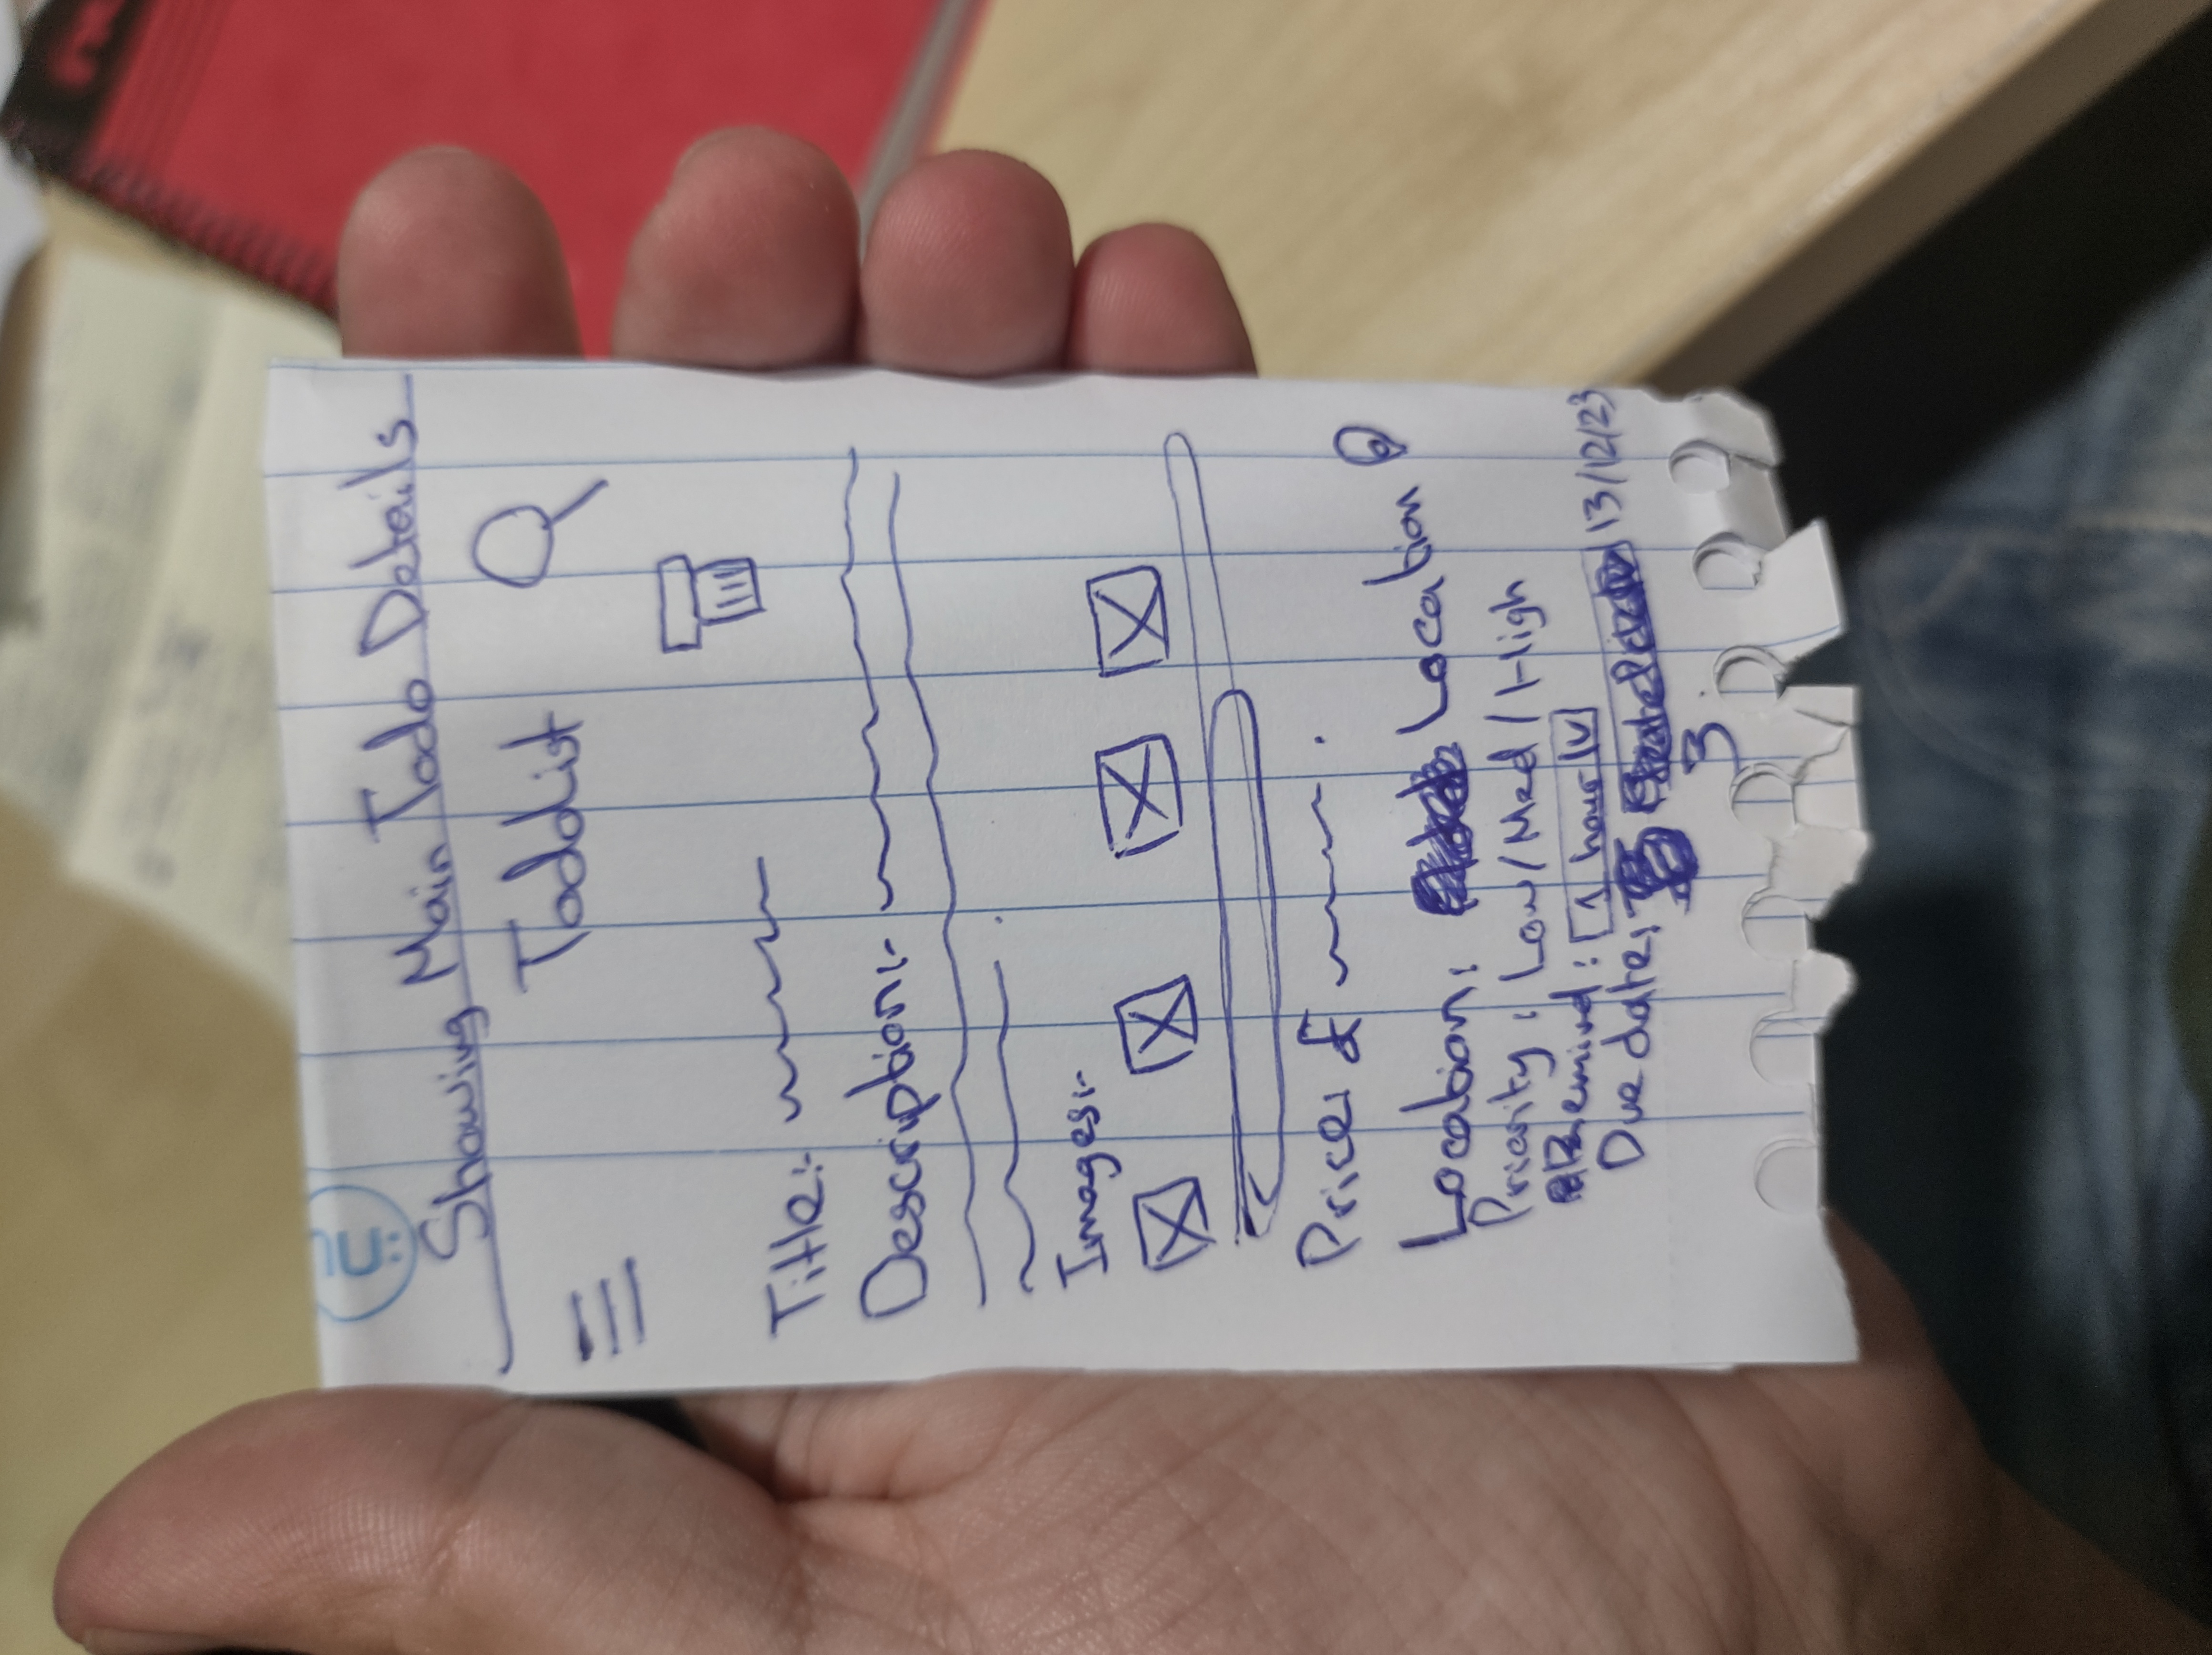 Showing Main Todo Details
TodoList
Title:-
Description:-
Images:-
Price: £
Location: Location
Priority: Low/Med/High
Remind: 1 hour V
Due date: 13/12/23
3